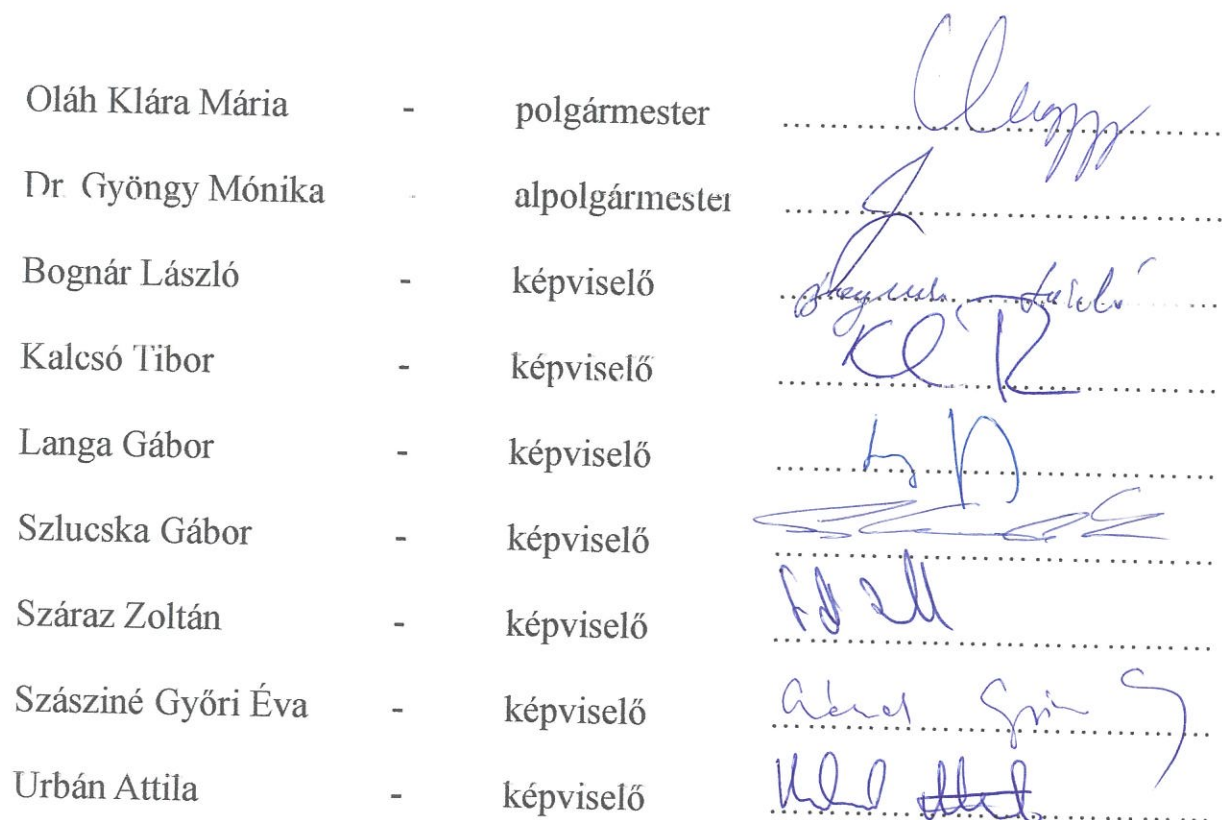 Oláh Klára Mária - polgármester
Dr. Gyöngy Mónika - alpolgármester
Bognár László - képviselő
Kalcsó Tibor - képviselő
Langa Gábor - képviselő
Szlucska Gábor - képviselő
Száraz Zoltán - képviselő
Szásziné Győri Éva - képviselő
Urbán Attila - képviselő